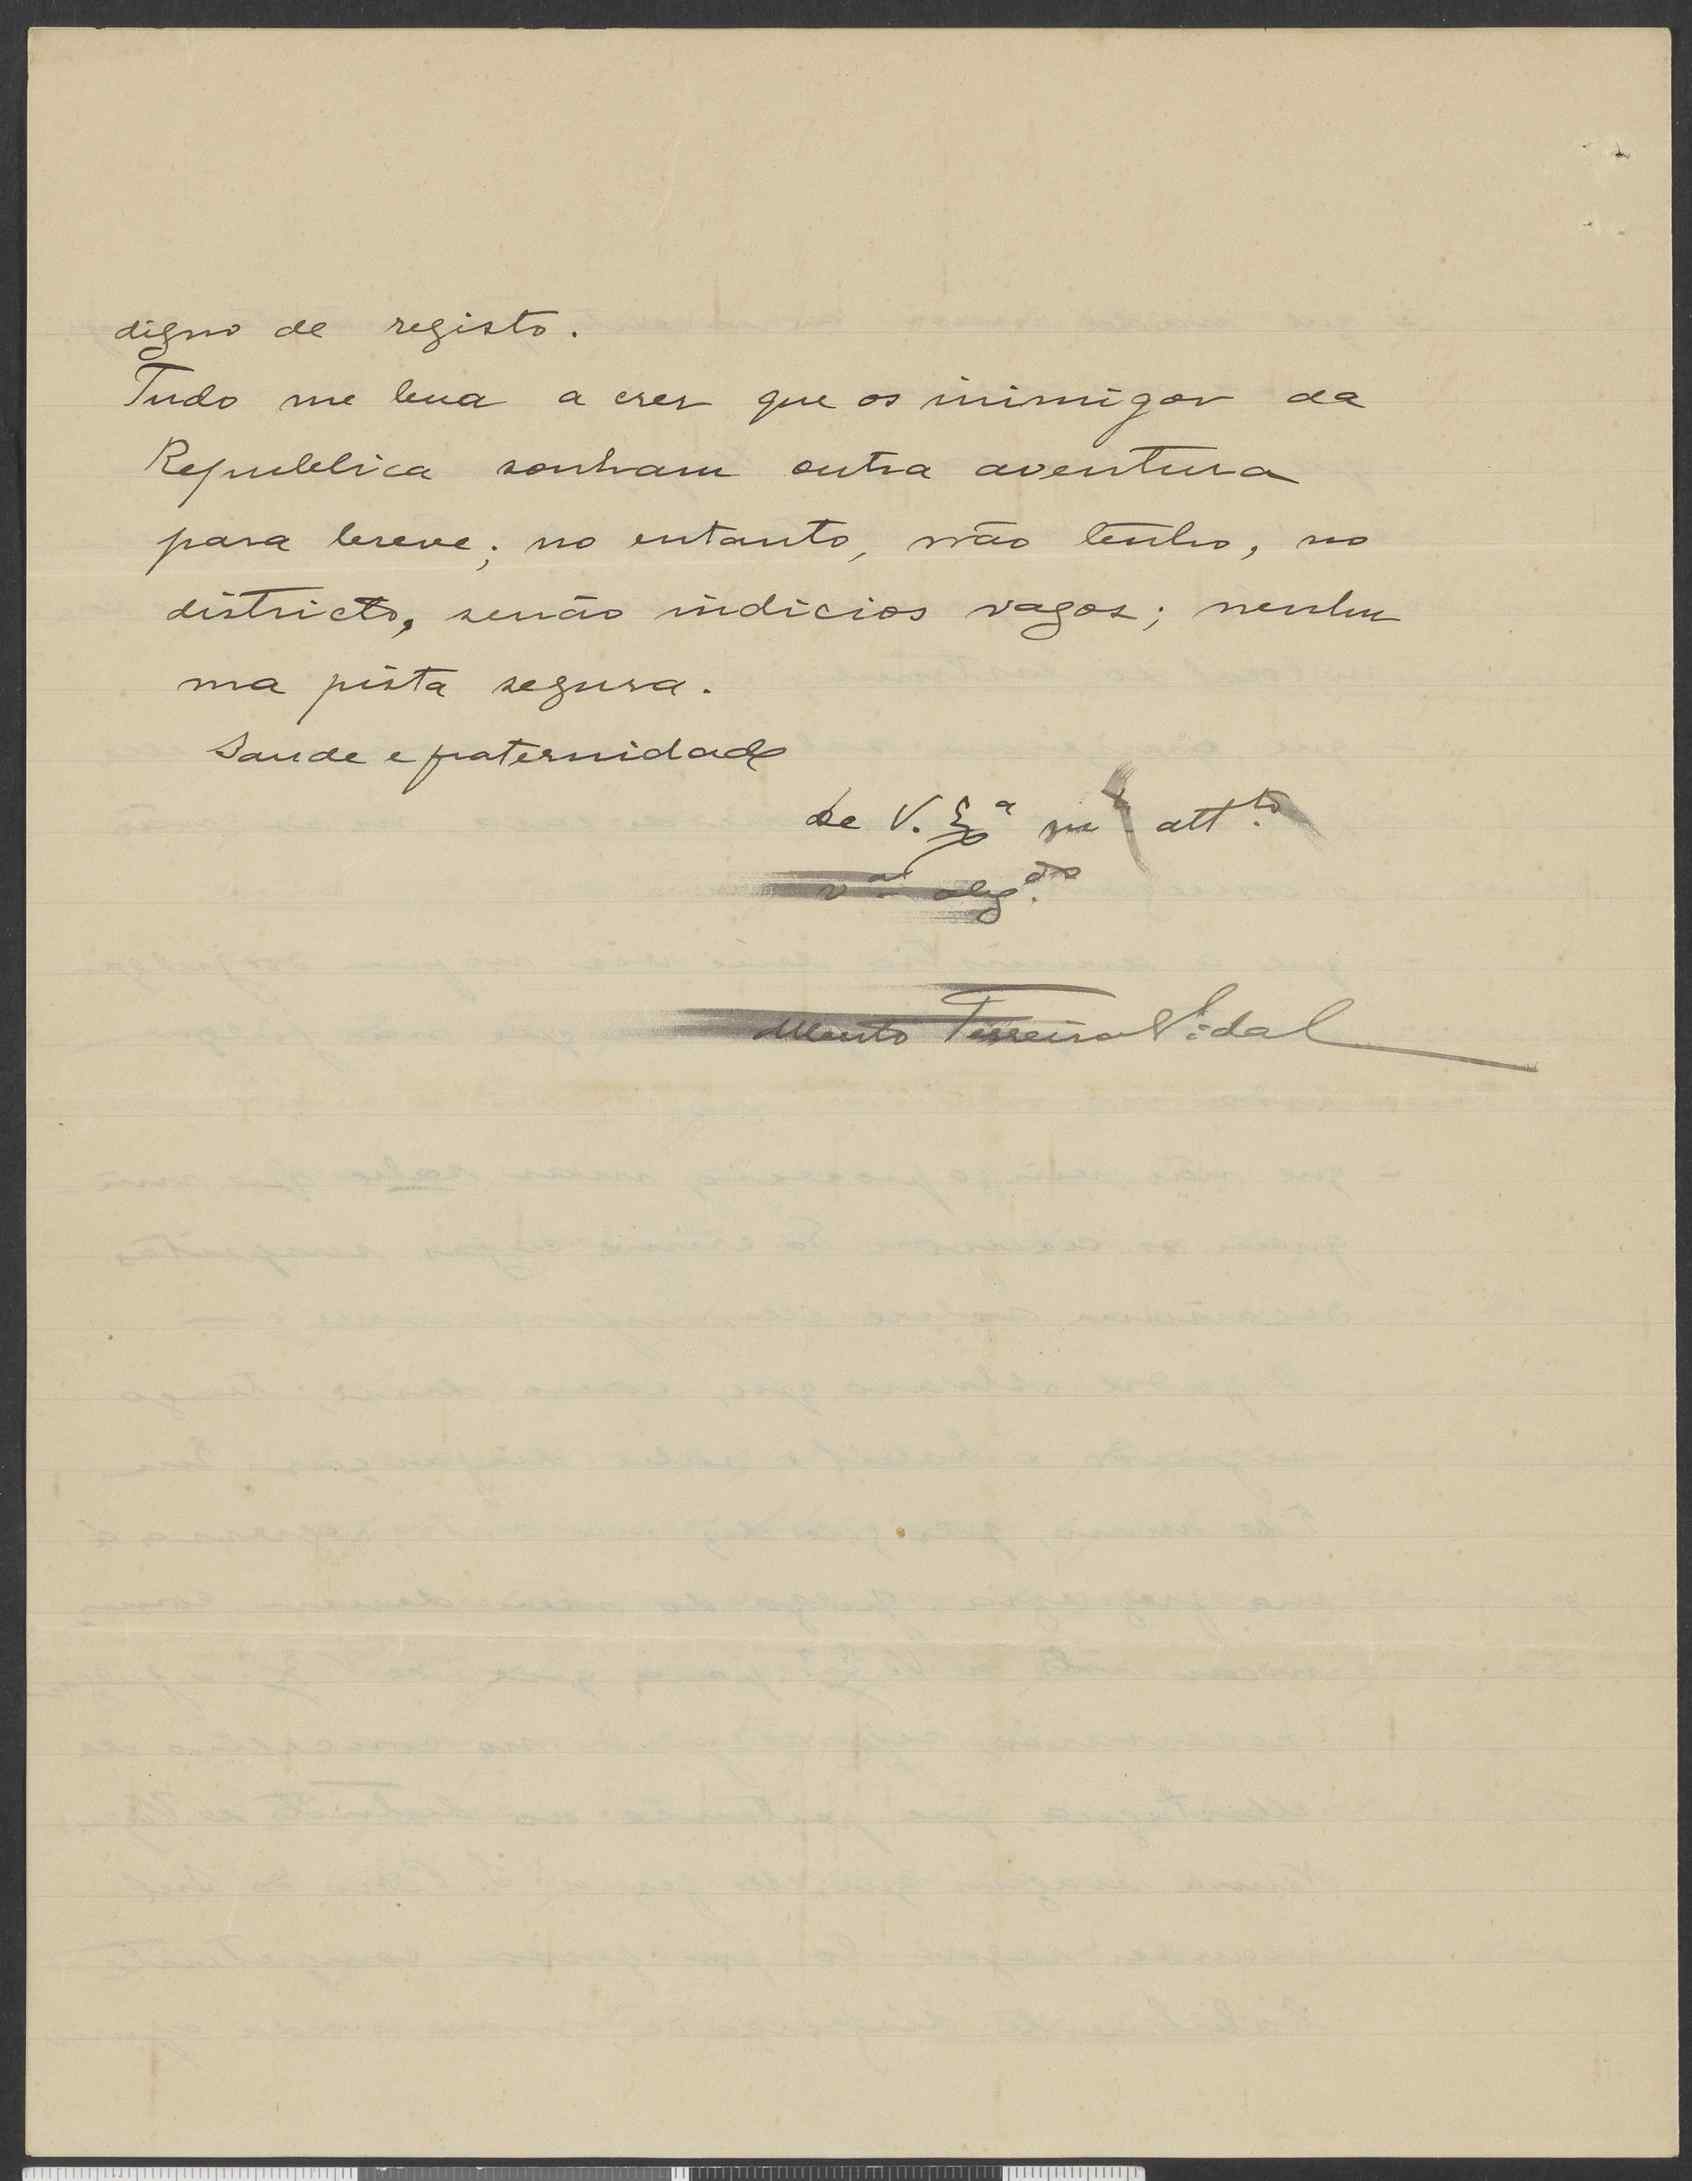 digno de registo.
Tudo me leva a crer que os inimigos da
Republica sonham outra aventura
para breve; no entanto, não tenho, no
districto, senão indicios vagos; nenhu
ma pista segura.
Saude e fraternidade
de V. Exª att.to
obg.do
Ferreira Vidal